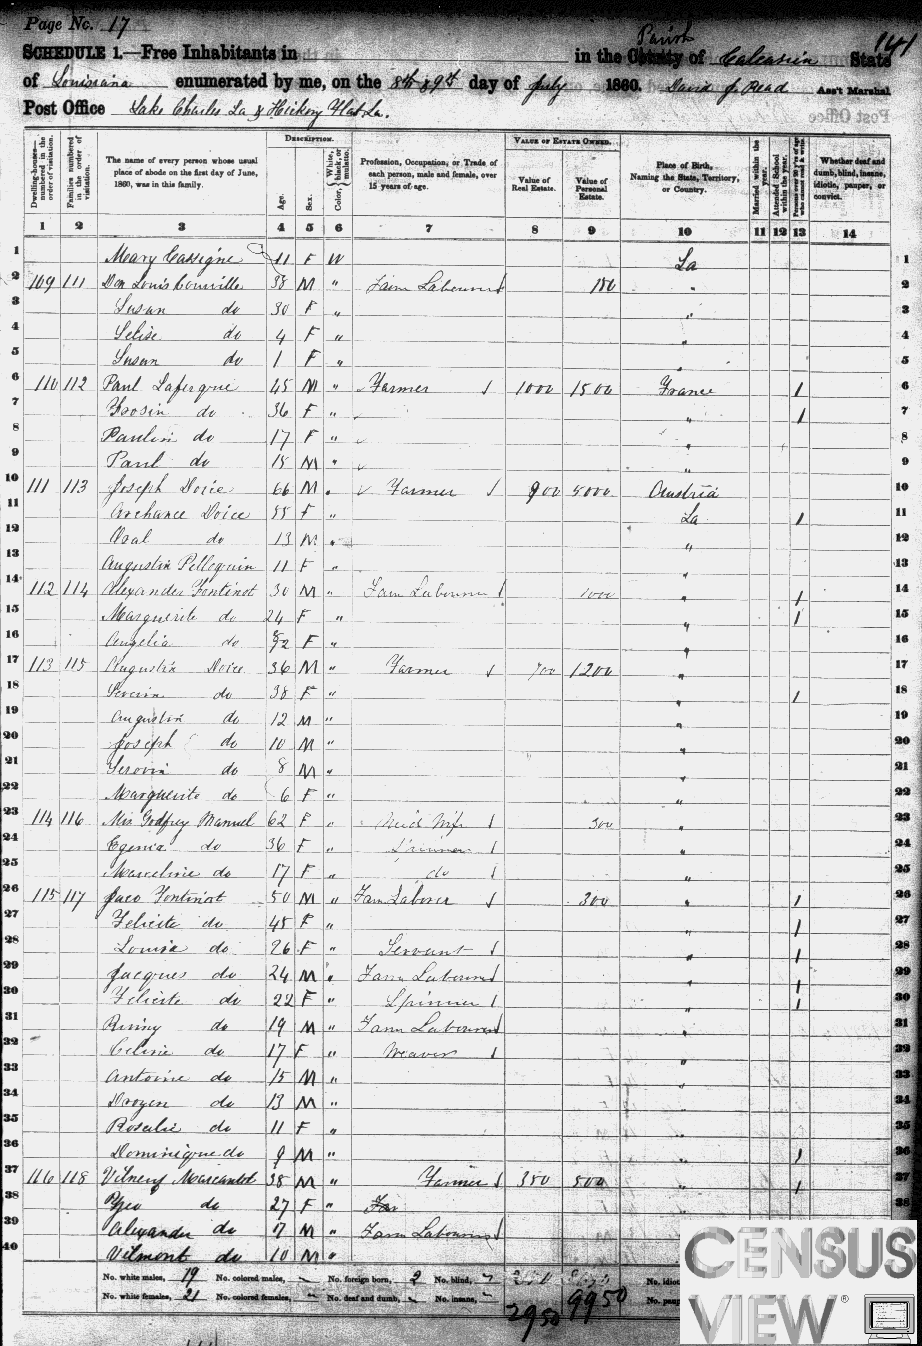 Page No. 17
SCHEDULE 1.—Free Inhabitants in in the County Parish of Calcasieu State 141
of Louisiana enumerated by me, on the 8th & 9th day of July 1860. David J. Read Ass't Marshal
Post Office Lake Charles La & Hickory Flat La.
Dwelling-houses—numbered in the order of visitation.
Families numbered in the order of visitation.
The name of every person whose usual place of abode on the first day of June, 1860, was in this family.
DESCRIPTION.
Age.
Sex.
Color, White, black, or mulatto.
Profession, Occupation, or Trade of each person, male and female, over 15 years of age.
VALUE OF ESTATE OWNED.
Value of Real Estate.
Value of Personal Estate.
Place of Birth, Naming the State, Territory, or Country.
Married within the year.
Attended School within the year.
Persons over 20 y'rs of age who cannot read & write.
Whether deaf and dumb, blind, insane, idiotic, pauper, or convict.
1 2 3 4 5 6 7 8 9 10 11 12 13 14
1 Mary Cassigne 11 F W La 1
2 109 111 Don Louis Courville 38 M " Farm Labourer 150 " 2
3 Susan do 30 F " " 3
4 Selise do 4 F " " 4
5 Susan do 1 F " " 5
6 110 112 Paul Lafergue 45 M " Farmer 1000 1500 France 1 6
7 do 36 F " " 1 7
8 Paulin do 17 F " " 8
9 Paul do 15 M " " 9
10 111 113 Joseph Doice 66 M " Farmer 900 5000 Austria 10
11 Archance Doice 55 F " La 1 11
12 Oval do 13 M " " 12
13 Augustin Pelloquin 11 F " " 13
14 112 114 Alexander Fontinot 30 M " Farm Labourer 1000 " 1 14
15 Marguerite do 24 F " " 1 15
16 Angelia do F " " 16
17 113 115 Augustin Doice 36 M " Farmer 700 1200 " 17
18 do 38 F " " 1 18
19 Augustin do 12 M " " 19
20 Joseph do 10 M " " 20
21 do 8 M " " 21
22 Marguerite do 6 F " " 22
23 114 116 Mis Godfrey Manuel 62 F " Mid Wife 300 " 23
24 Egenia do 36 F " Spinner " 24
25 Marceline do 17 F " do " 25
26 115 117 Jaco Fontinot 50 M " Farm Laborer 300 " 1 26
27 Felicite do 45 F " " 1 27
28 Louisa do 26 F " Servant " 1 28
29 Jacques do 24 M " Farm Labourer " 1 29
30 Felicite do 22 F " Spinner " 1 30
31 Rimy do 19 M " Farm Labourer " 31
32 Celine do 17 F " Weaver " 32
33 Antoine do 15 M " " 33
34 Drozen do 13 M " 34
35 Rosalie do 11 F " " 35
36 Dominique do 9 M " " 1 36
37 116 118 Vilneuf Marcantel 38 M " Farmer 350 500 " 1 37
38 do 27 F " Far 38
39 Alexander do 17 M " Farm Labourer
40 Vilmont do 10 M "
No. white males, 19 No. colored males, No. foreign born, 2 No. blind, No. idiot
No. white females, 21 No. colored females, No. deaf and dumb, No. insane, No. pau
2950 9950
CENSUS
VIEW®